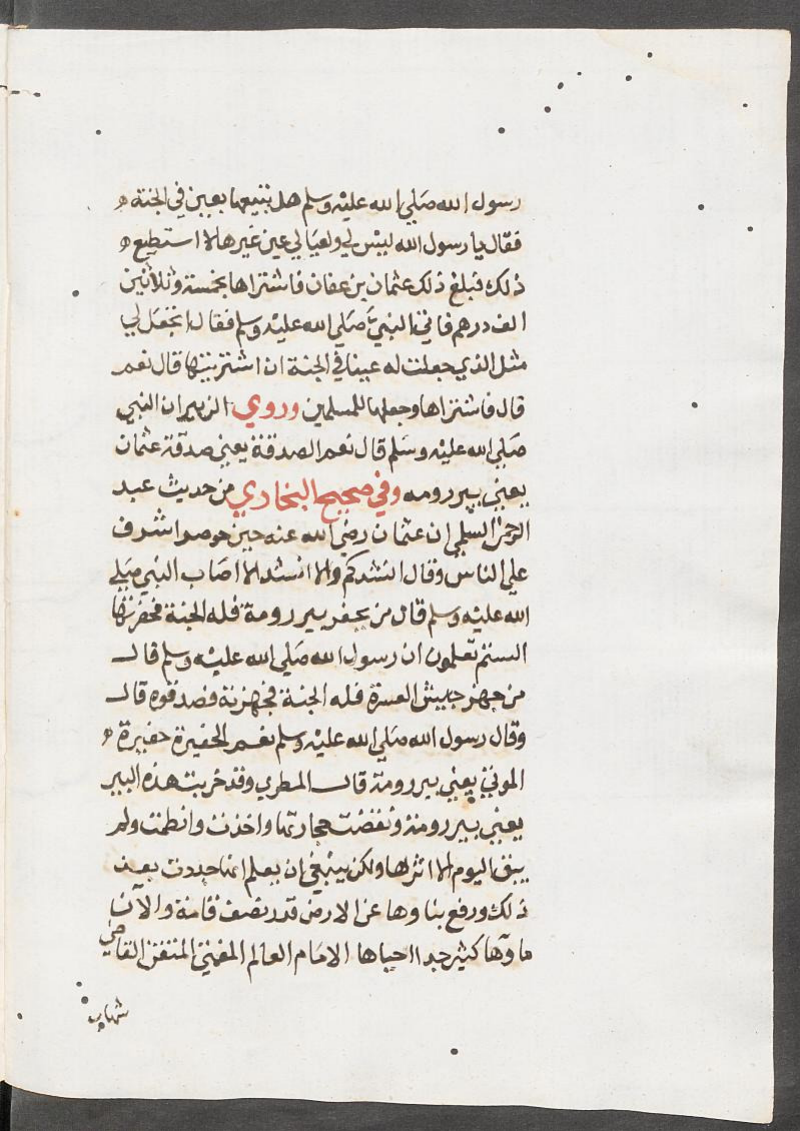 رسول الله صلي الله عليه وسلم هل تبيعها بعين في الجنة
فقال يا رسول الله ليس لي ولعيالي عين غيرها لا استطيع
ذلك فبلغ ذلك عثمان بن عفان فاشتراها بخمسة وثلاثين
الف درهم فاتي النبي صلي الله عليه وسلم فقال اتجعل لي
مثل الذي جعلت له عينا في الجنة ان اشتريتها قال نعم
قال فاشتراها وجعلها للمسلمين وروي الزبير ان النبي
صلي الله عليه وسلم قال نعم الصدقة يعني صدقة عثمان
يعني بير رومه وفي صحيح البخاري من حديث عبد
الرحمن السلمي ان عثمان رضي الله عنه حين حوصر اشرف
علي الناس وقال انشدكم ولا انشد الا اصاب النبي صلي
الله عليه وسلم قال من يحفر بير رومة فله الجنة فحفرتها
الستم تعلمون ان رسول الله صلي الله عليه وسلم قال
من جهز جيش العسرة فله الجنة فجهزته فصدقوه قال
وقال رسول الله صلي الله عليه وسلم نعم الحفيرة حفيرة
الموني يعني بير رومة قال المطري وقد خربت هذه البير
يعني بير رومة ونقضت حجارتها واخذت وانطمت ولم
يبق اليوم الا اثرها ولكن ينبغي ان يعلم انها جددت بعد
ذلك ورفع بناوها عن الارض قدر نصف قامة والآن
ماوها كثير جدا احياها الامام العالم المفتي المتفنن القاضي
شهاب